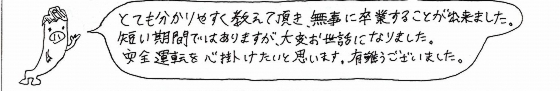 とても分かりやすく教えて頂き、無事に卒業することが出来ました。
短い期間ではありますが、大変お世話になりました。
安全運転を心掛けたいと思います。有難うございました。